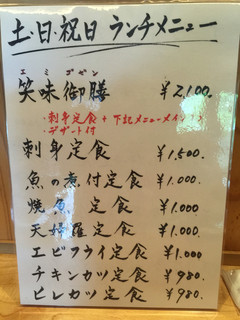 土・日・祝日 ランチメニュー
エミゴゼン
笑味御膳 ¥2,100.
・刺身定食 + 下記メニューメイン1つ
・デザート付
刺身定食 ¥1,500.
魚の煮付定食 ¥1,000.
焼魚 定食 ¥1,000
天婦羅定食 ¥1,000
エビフライ定食 ¥1,000
チキンカツ定食 ¥980.
ヒレカツ定食 ¥980.